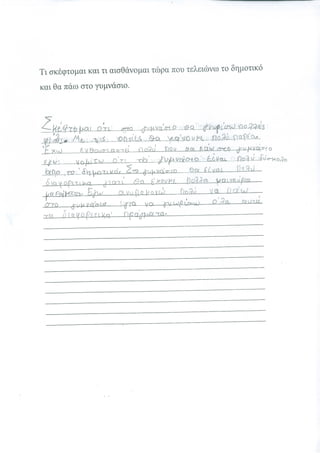 Τι σκέφτομαι και τι αισθάνομαι τώρα που τελειώνω το δημοτικό
και θα πάω στο γυμνάσιο.
Σκέφτομαι ότι στο γυμνάσιο θα γνωρίσω πολλές
φίλες με τις οποίες θα κάνουμε πολύ παρέα.
Έχω ενθουσιαστεί πολύ που θα πάω στο γυμνάσιο
εγώ νομίζω ότι το γυμνάσιο είναι πολύ δύσκολο
από το δημοτικό. Στο γυμνάσιο θα είναι πολύ
διαφορετικά γιατί θα έχουμε πολλά καινούρια
μαθήματα Εγώ ανυπομονώ πολύ να πάω
στο γυμνάσιο για να γνωρίσω όλα αυτά
τα διαφορετικά πράγματα.